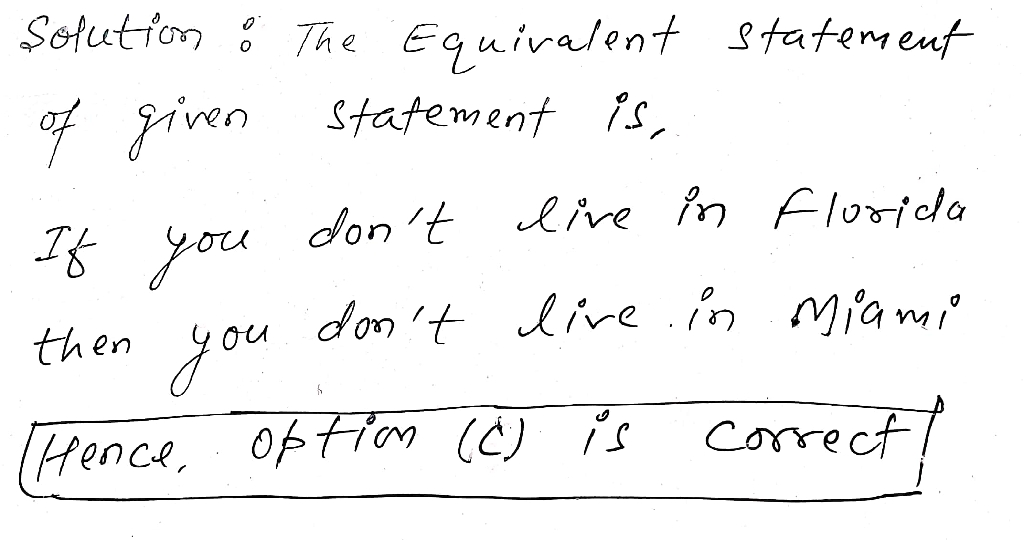 Solution : The Equivalent statement
of given statement is,
If you don't live in Florida
then you don't live in Miami
Hence, option (C) is correct